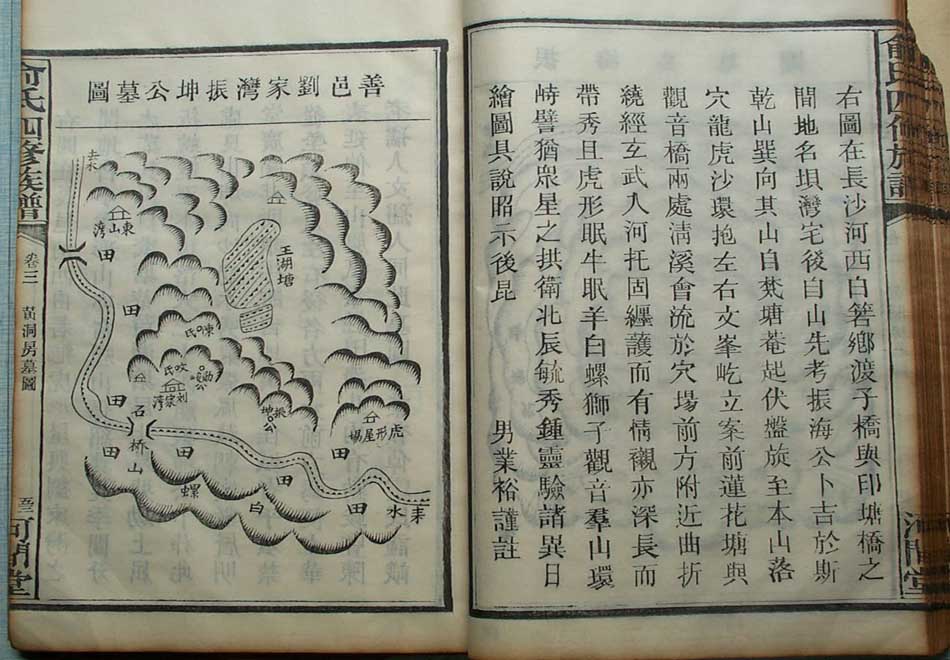 俞氏四修族譜
河閒堂
右圖在長沙河西白箬鄉渡子橋與印塘橋之
間地名垻灣宅後自山先考振海公卜吉於斯
乾山巽向其山自梵塘菴起伏盤旋至本山落
穴龍虎沙環抱左右文峯屹立案前蓮花塘與
觀音橋兩處淸溪會流於穴場前方附近曲折
繞經玄武入河托固纏護而有情襯亦深長而
帶秀且虎形眠牛眠羊白螺獅子觀音羣山環
峙譬猶眾星之拱衛北辰毓秀鍾靈驗諸異日
繪圖具說昭示後昆　男業裕謹註
善邑劉家灣振坤公墓圖
王湖塘
東山灣
田
田
田
陳氏
歐氏
劉家灣
振坤公
虎形屋場
石桥山
田
田
田
田
白螺
來水
俞氏四修族譜
卷三
黃洞房墓圖
河閒堂